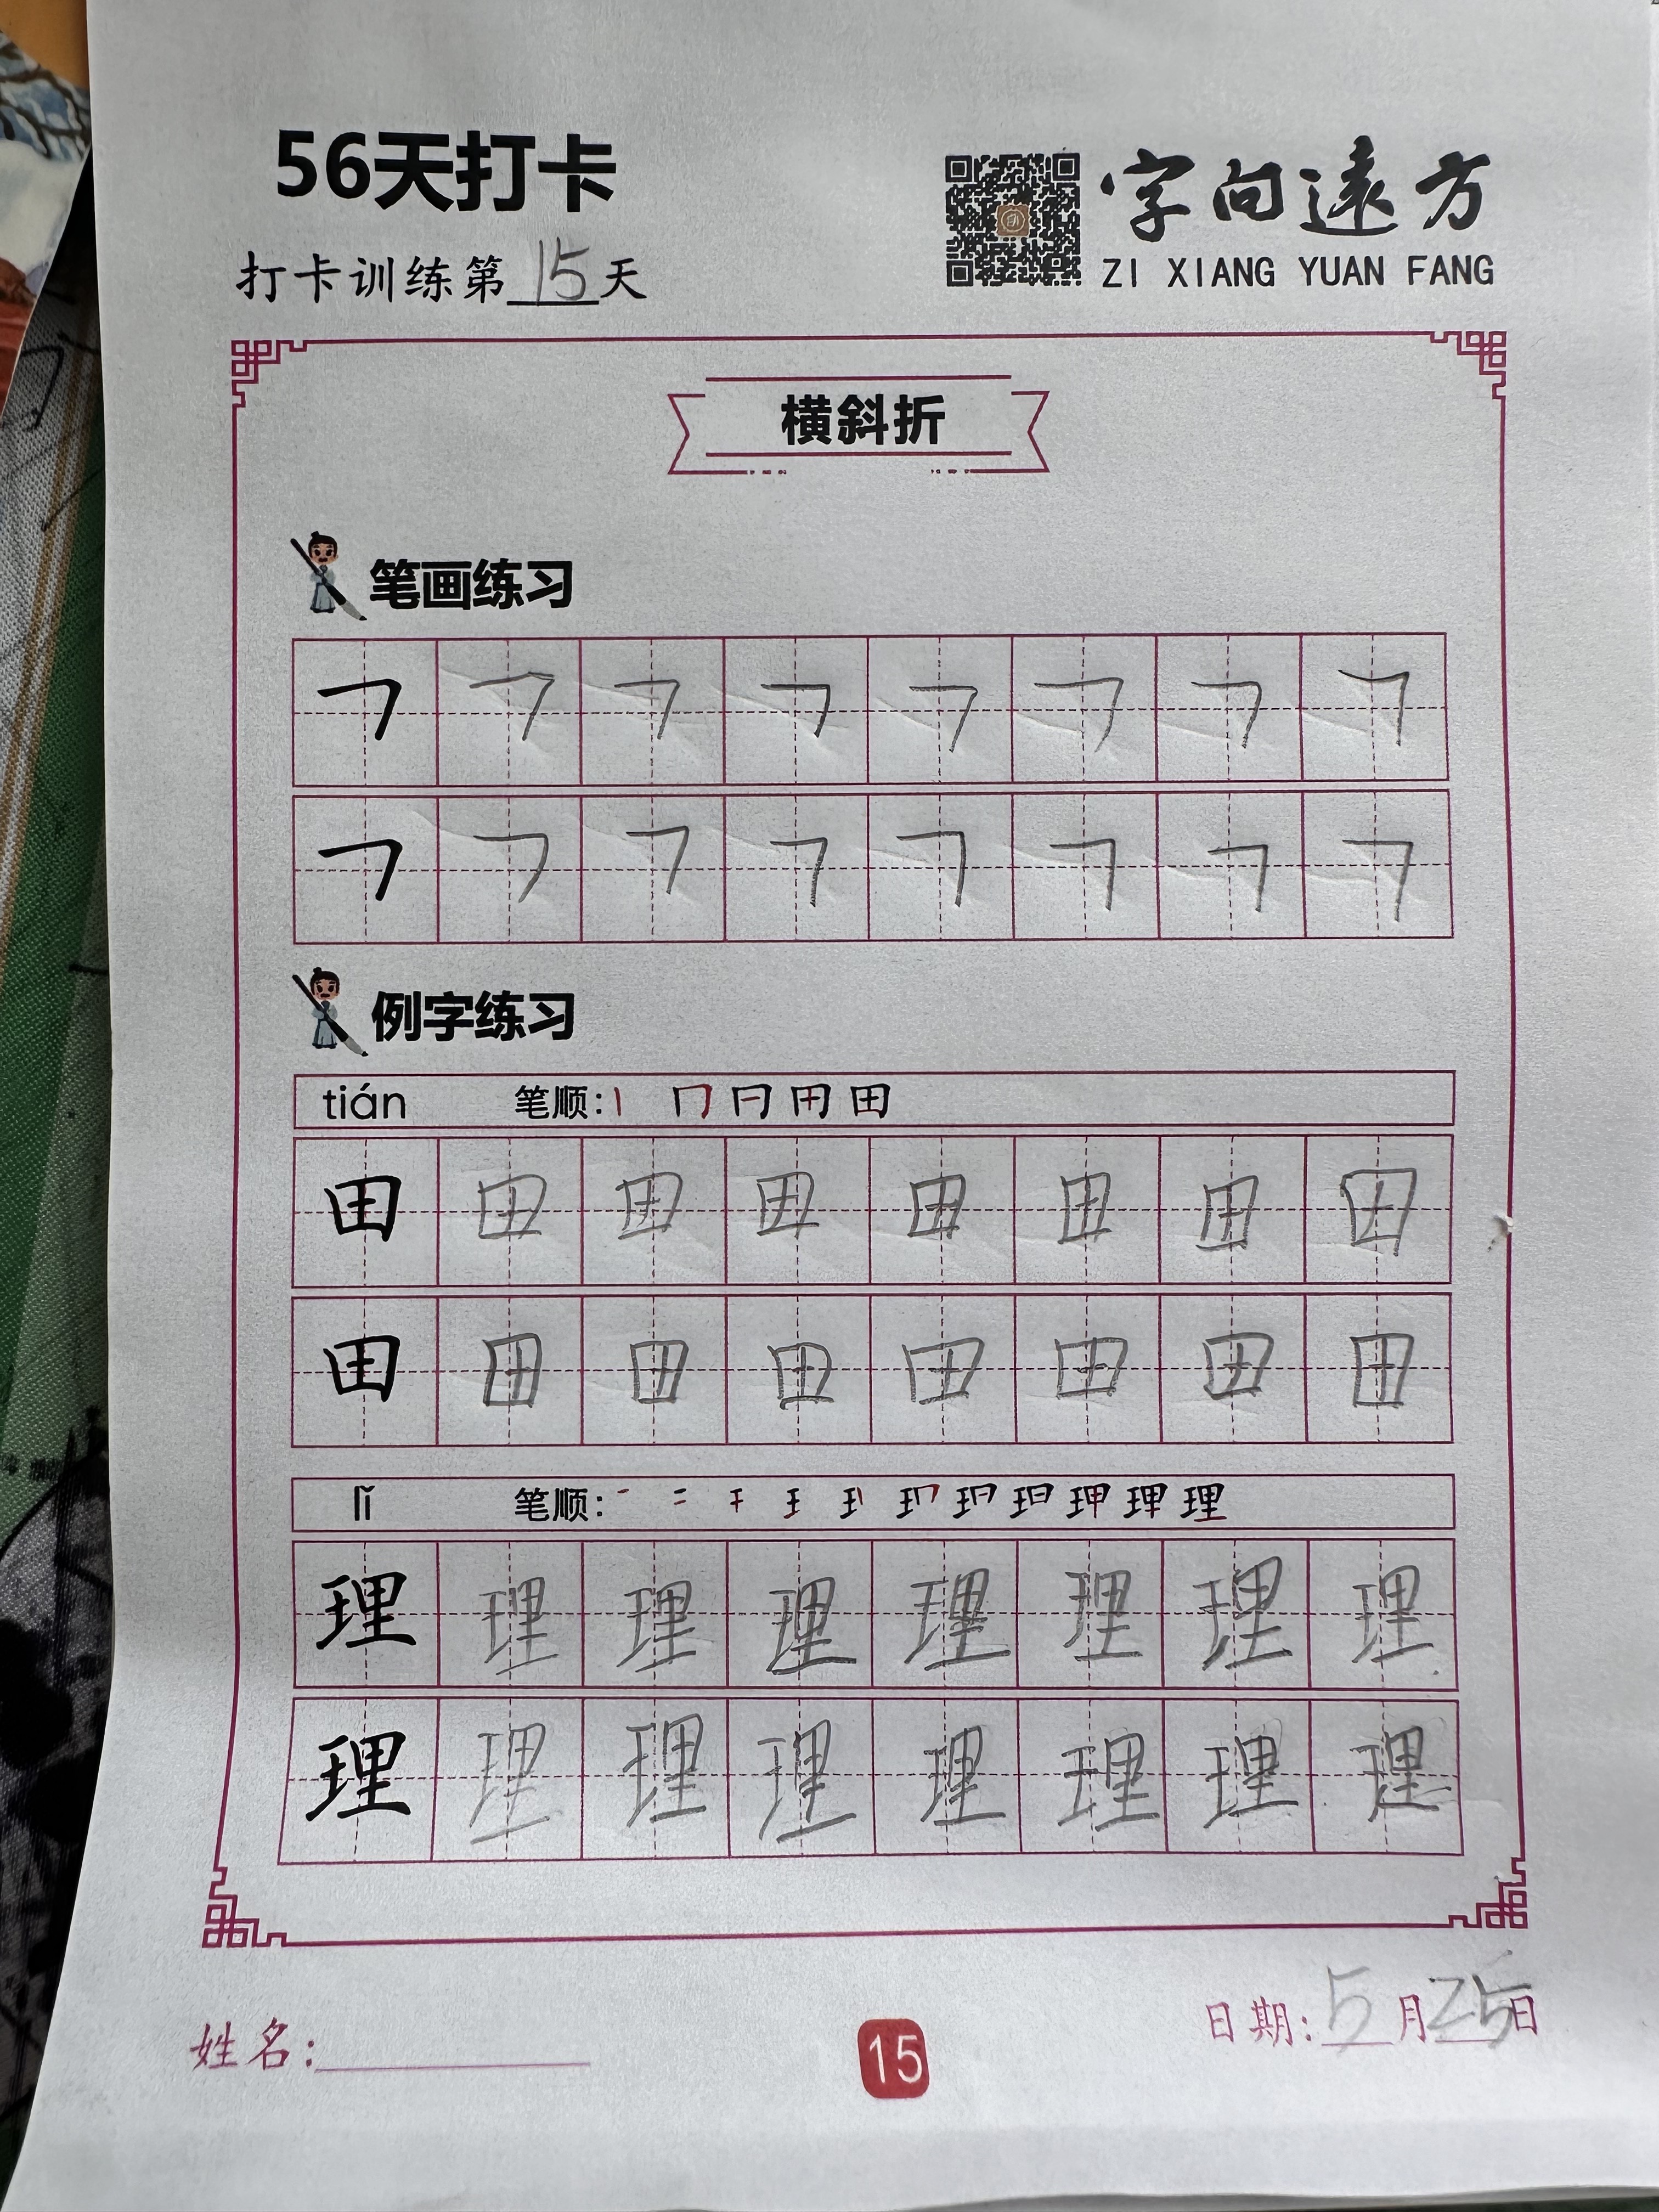 56天打卡
字向遠方
ZI XIANG YUAN FANG
打卡训练第15天
横斜折
笔画练习
㇕ ㇕ ㇕ ㇕ ㇕ ㇕ ㇕ ㇕
㇕ ㇕ ㇕ ㇕ ㇕ ㇕ ㇕ ㇕
例字练习
tián 笔顺:
田 田 田 田 田 田 田 田
田 田 田 田 田 田 田 田
lǐ 笔顺:
理 理 理 理 理 理 理 理
理 理 理 理 理 理 理 理
姓名:
15
日期:5月25日